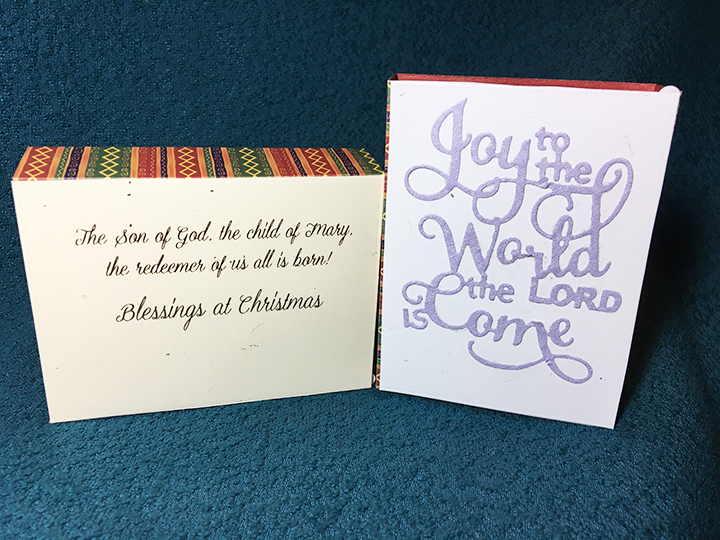 The Son of God, the child of Mary,
the redeemer of us all is born!
Blessings at Christmas
Joy to
the
World
the LORD
is Come